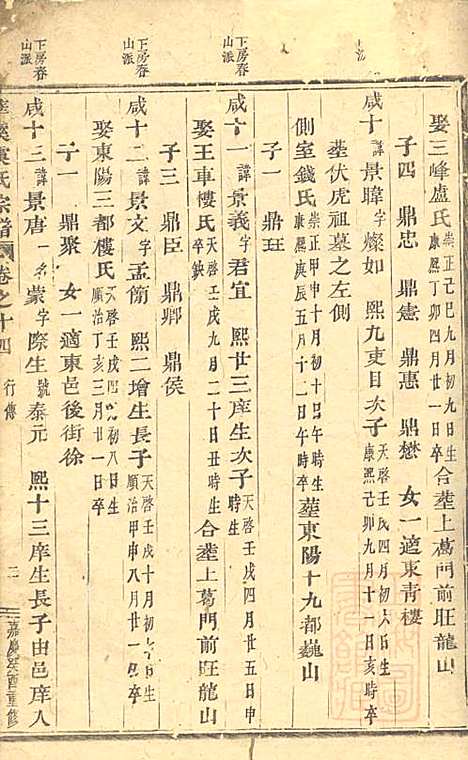 娶三峰盧氏崇正己巳九月初九日生康熙丁卯四月廿一日卒合塟上葛門前旺龍山
子四 鼎忠 鼎憲 鼎惠 鼎懋 女一適東青樓
咸十 諱景暐字燦如 熙九吏目次子天啓壬戌四月初六日生康熙己卯九月十一日亥時卒
塟伏虎祖墓之左側
側室錢氏崇正甲申十月初十日午時生康熙庚辰五月十二日午時卒塟東陽十九都巍山
子一 鼎玨
下房春山派
咸十一諱景義字君宜 熙廿三庠生次子天啓壬戌四月廿五日申時生
娶王車樓氏天啓壬戌九月二十日丑時生卒缺合塟上葛門前旺龍山
子三 鼎臣 鼎卿 鼎侯
下房春山派
咸十二諱景文字孟簡 熙二增生長子天啓壬戌十月初六日生順治甲申八月廿一日卒
娶東陽三都樓氏天啓壬戌四月初八日生順治丁亥三月廿一日卒
子一 鼎聚 女一適東邑後街徐
下房春山派
咸十三諱景唐一名蒙字際生號泰元 熙十三庠生長子由邑庠入
氏宗譜 卷之十四 行傳 二 嘉慶癸酉重修